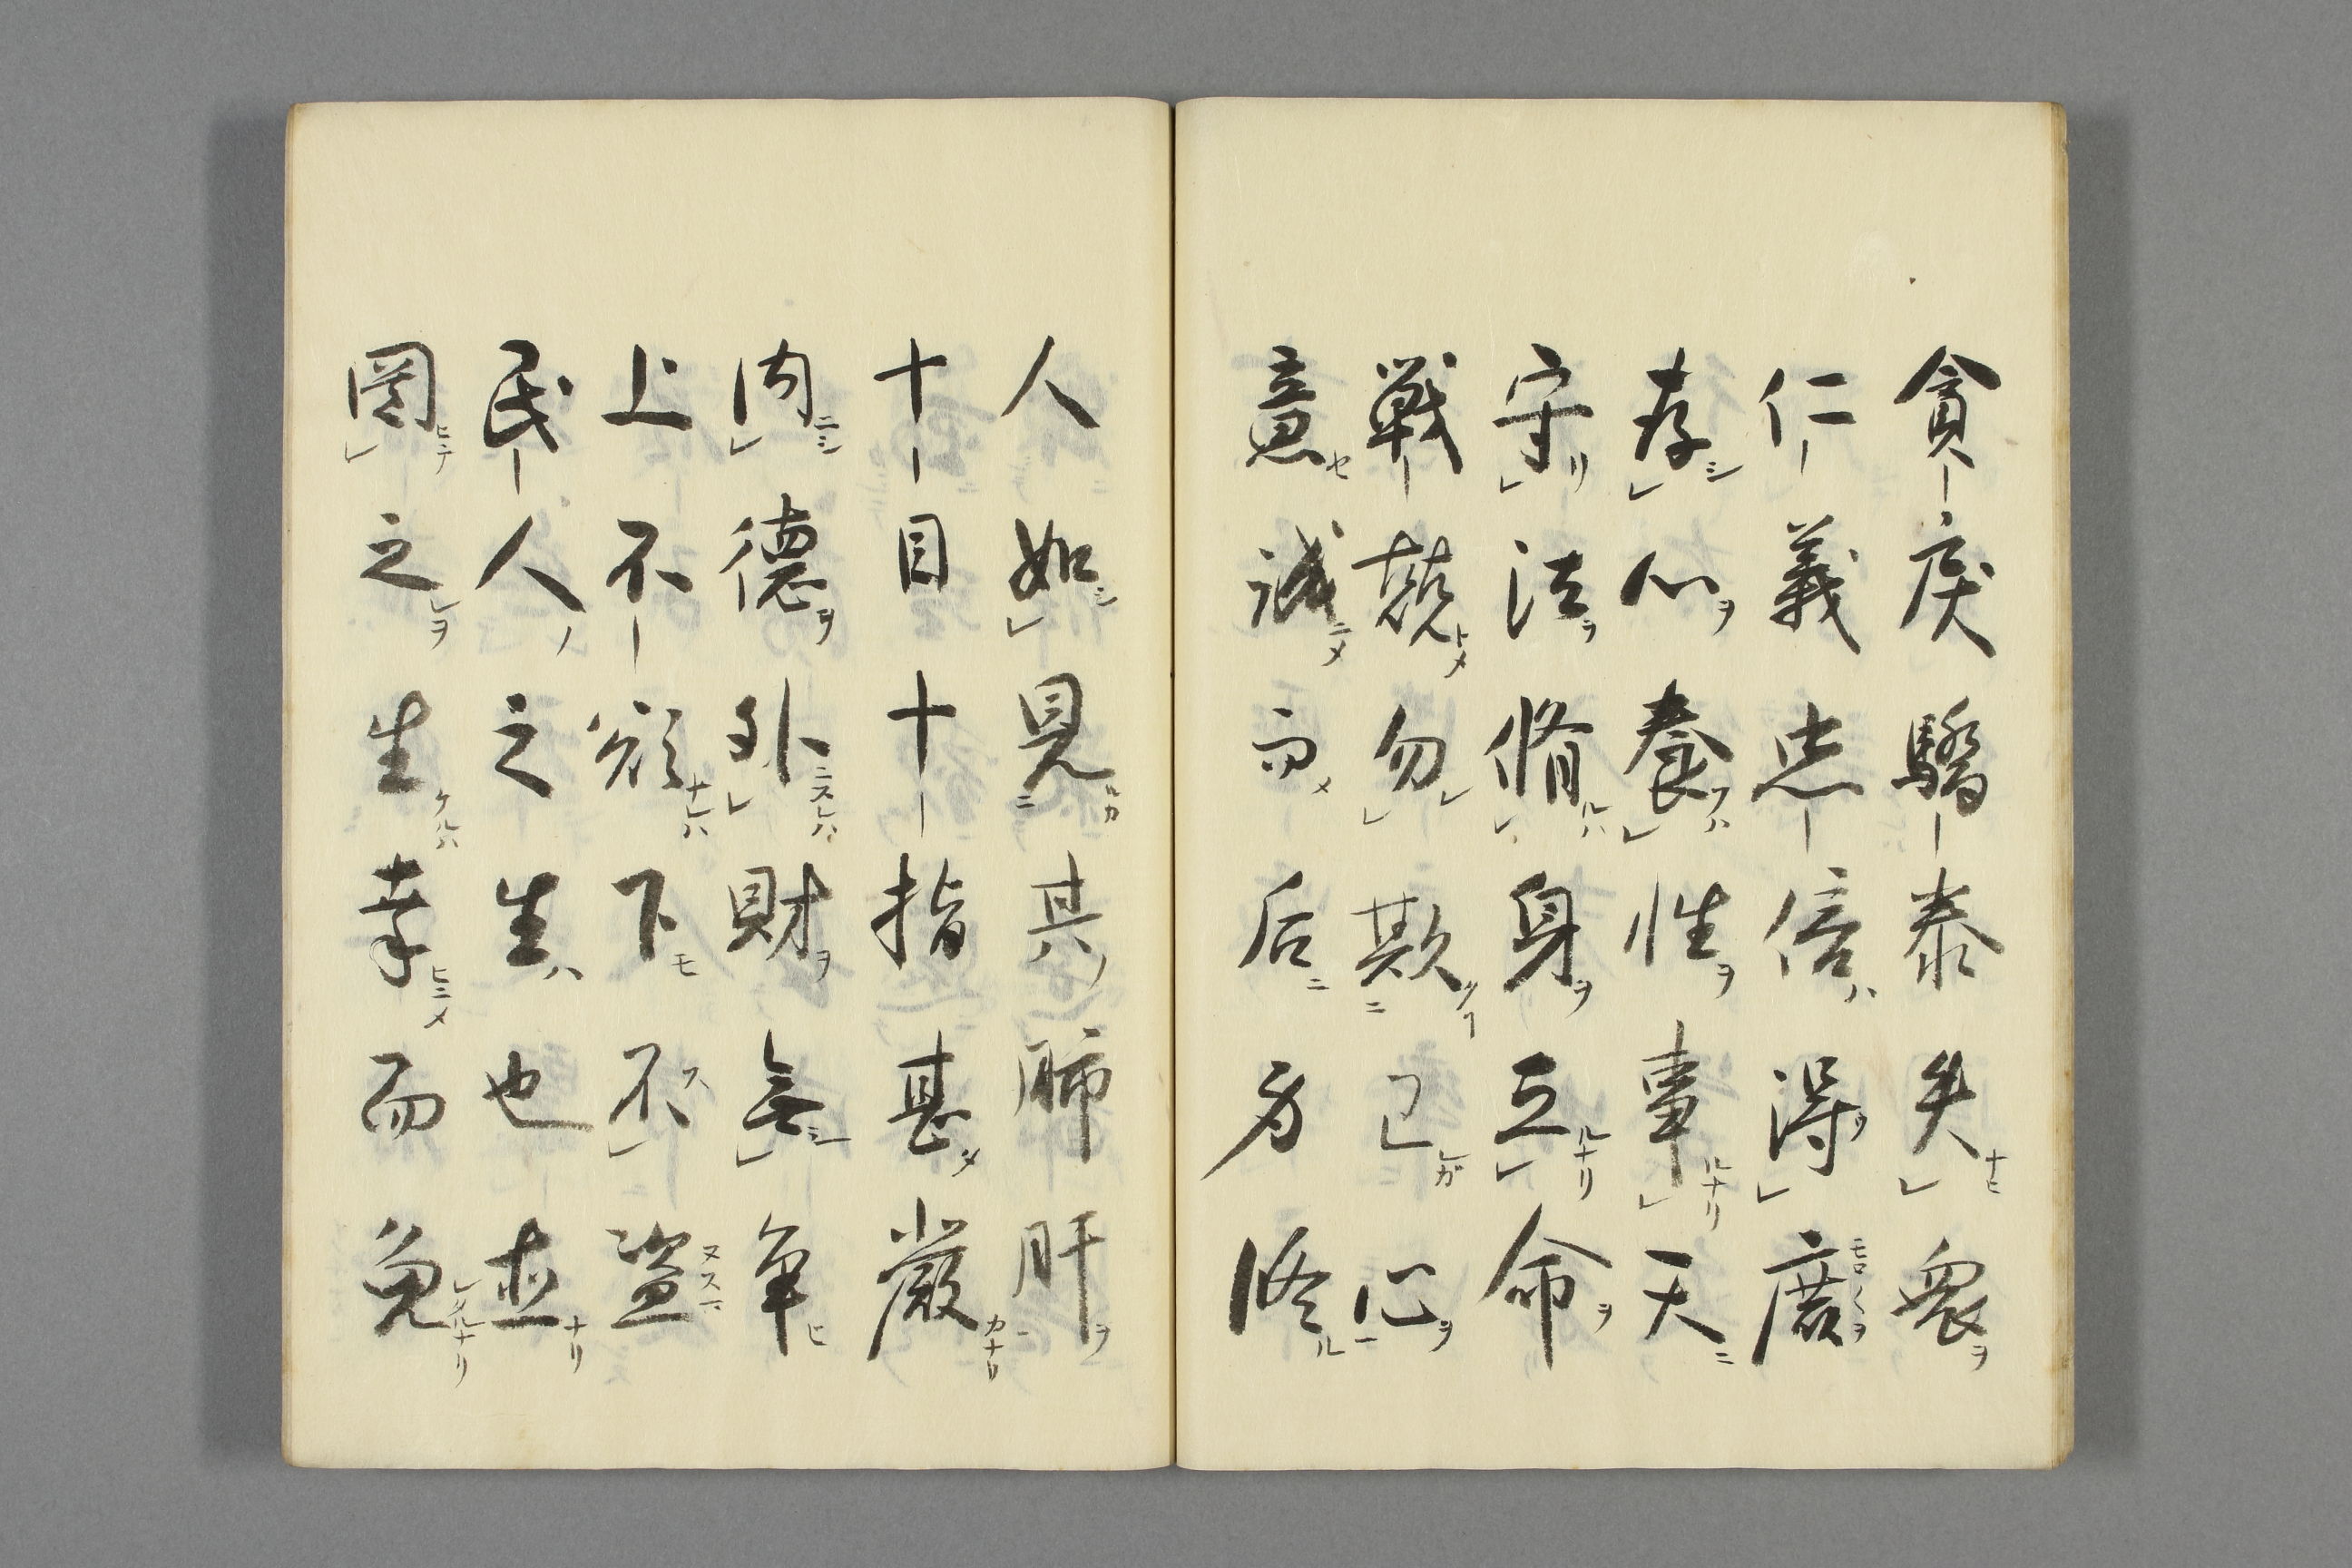 貪戻驕泰失衆
仁義忠信得庶
存心養性事天
守法脩身立命
戦兢勿欺己心
意誠而后身修
人如見其肺肝
十目十指甚厳
内徳外財無争
上不欲下不盗
民人之生也直
罔之生幸而免